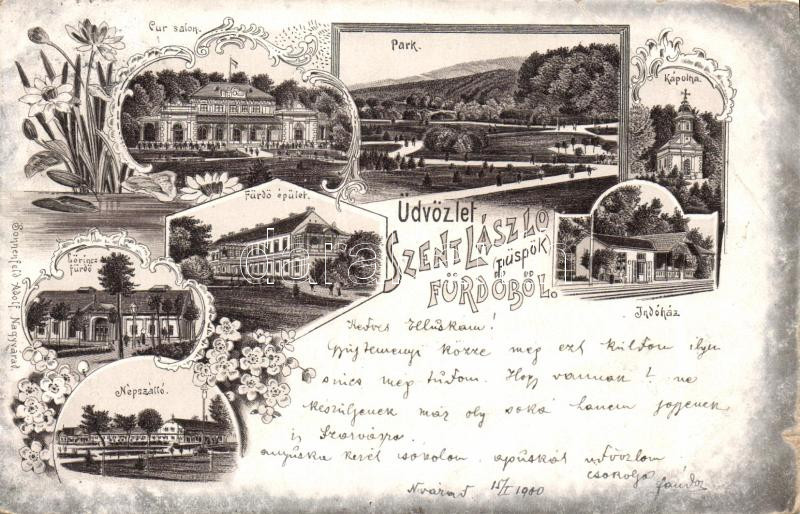 Cur salon.
Park.
Kápolna.
Fürdő épület.
Üdvözlet
SZENT LÁSZLÓ
(püspök)
FÜRDŐBŐL.
Lőrincz
fürdő
Indóház
Népszálló.
Sonnenfeld Adolf, Nagyvárad
Kedves Illuskám!
közre meg ezt küldöm ilyen
sincs meg tudom. Hogy vannak! ne
készüljenek már oly soká hanem jöjjenek
is Szarvasra.
anyuska kezét csókolom. apuskát üdvözlöm
csókolja Sándor
Nvárad 15/I 1900